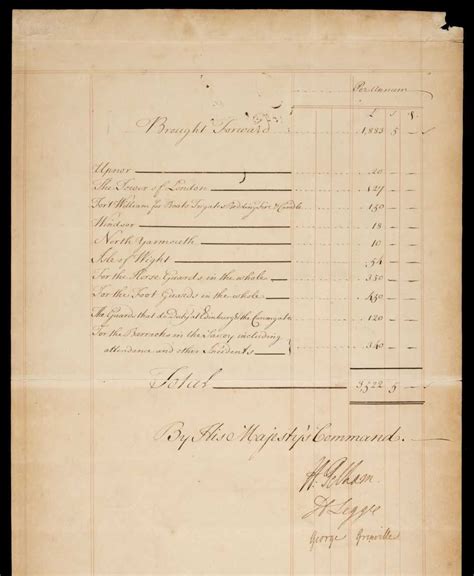 Per Annum
£ s
Brought Forward 1,883 5
Upnor 20
The Tower of London 127
Fort William for Boats 150
Windsor 18
North Yarmouth 10
Isle of Wight 54
For the Horse Guards in the whole 350
For the Foot Guards in the whole 450
The Guards that do Duty at 120
For the Barracks in the Savoy including
attendance and other Incidents 340
Total 3,522 5
By His Majesty's Command.
H Pelham
H Legge
George Grenville